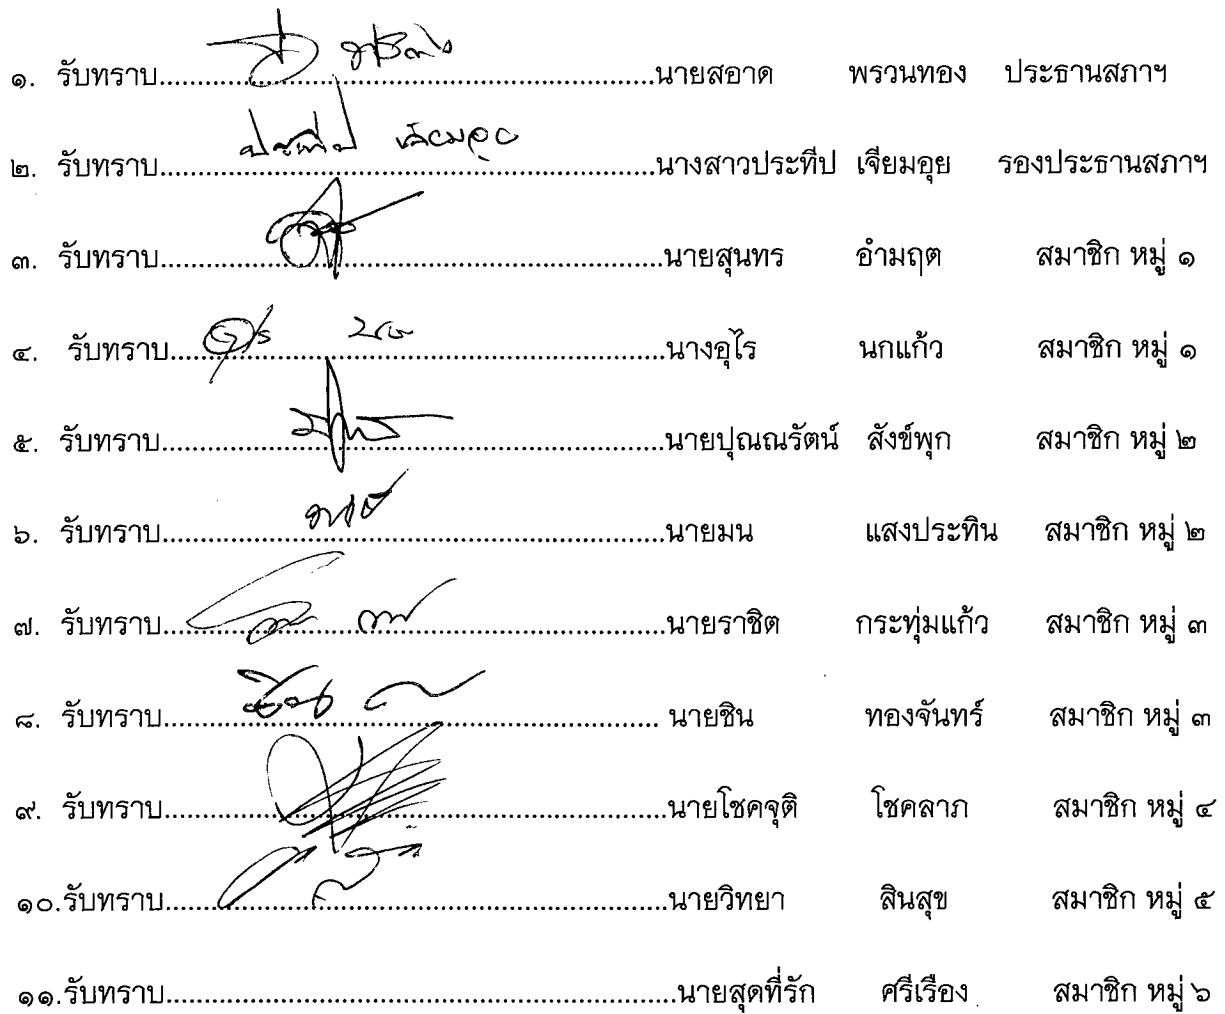 ๑. รับทราบ............................................................นายสอาด พรวนทอง ประธานสภาฯ
๒. รับทราบ............................................................นางสาวประทีป เจียมอุย รองประธานสภาฯ
๓. รับทราบ............................................................นายสุนทร อำมฤต สมาชิก หมู่ ๑
๔. รับทราบ............................................................นางอุไร นกแก้ว สมาชิก หมู่ ๑
๕. รับทราบ............................................................นายปุณณรัตน์ สังข์พุก สมาชิก หมู่ ๒
๖. รับทราบ............................................................นายมน แสงประทิน สมาชิก หมู่ ๒
๗. รับทราบ............................................................นายราชิต กระทุ่มแก้ว สมาชิก หมู่ ๓
๘. รับทราบ............................................................ นายชิน ทองจันทร์ สมาชิก หมู่ ๓
๙. รับทราบ............................................................นายโชคจุติ โชคลาภ สมาชิก หมู่ ๔
๑๐.รับทราบ............................................................นายวิทยา สินสุข สมาชิก หมู่ ๕
๑๑.รับทราบ............................................................นายสุดที่รัก ศรีเรือง สมาชิก หมู่ ๖